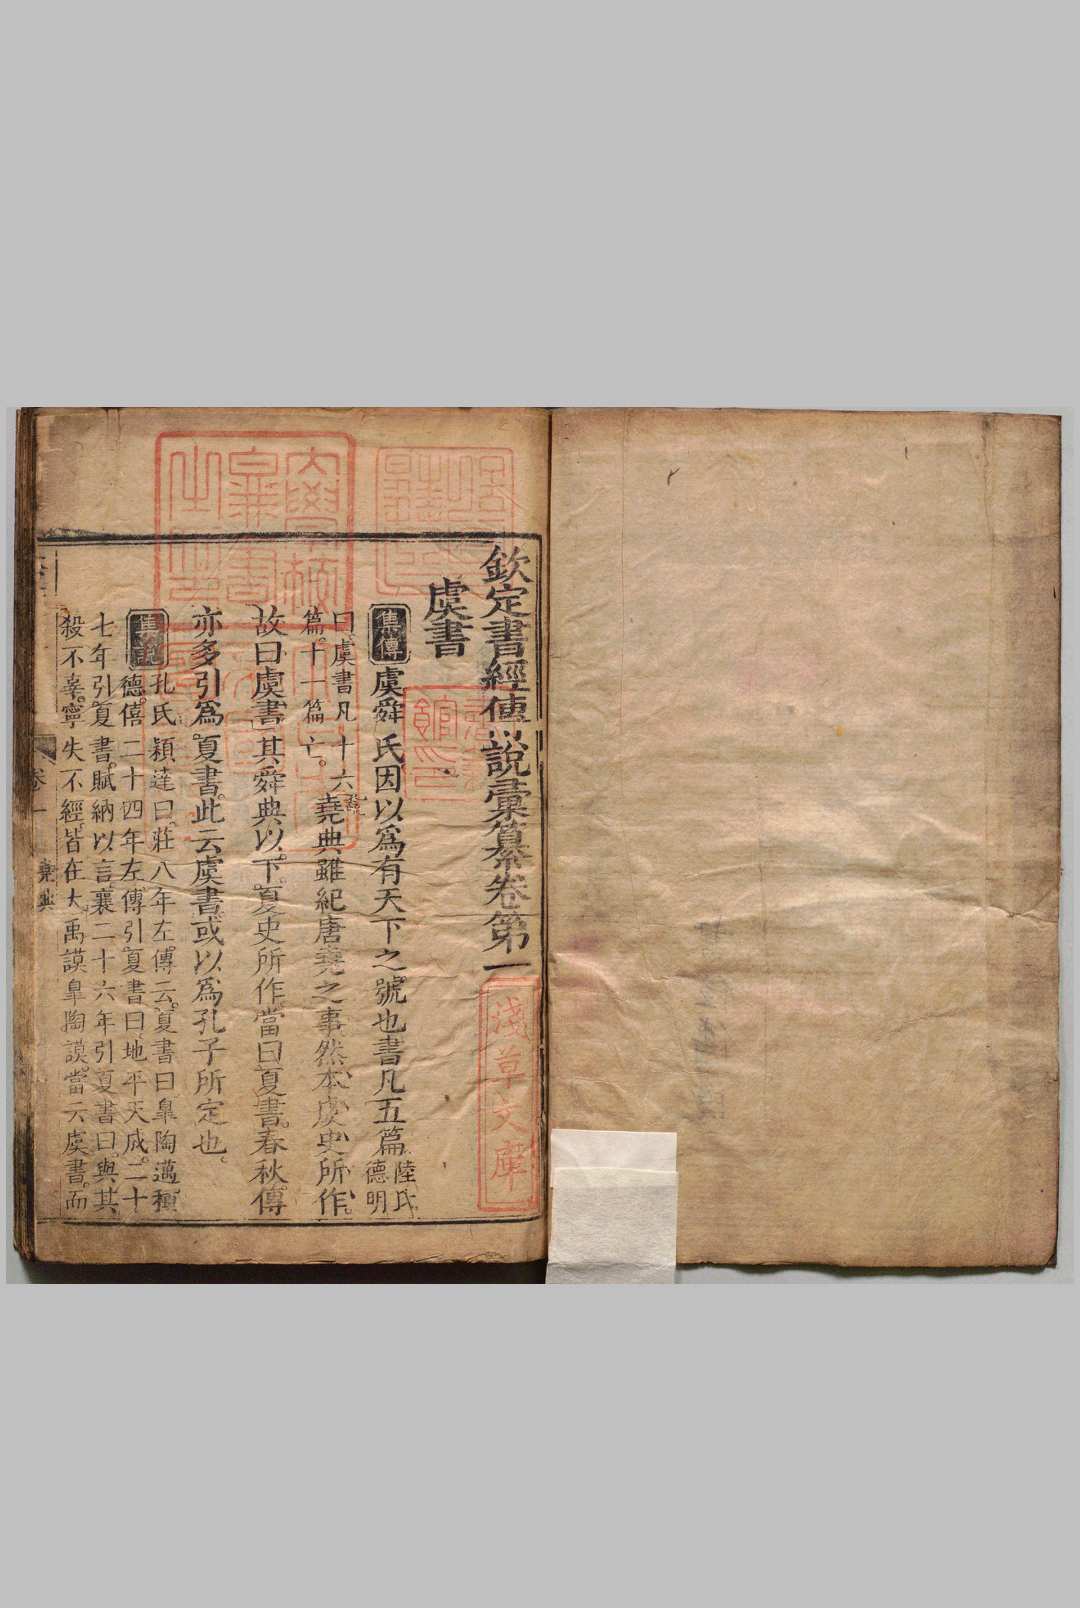 欽定書經傳說彙纂卷第一
虞書
集傳 虞舜氏因以爲有天下之號也書凡五篇陸氏德明
曰虞書凡十六篇十一篇亡。堯典雖紀唐堯之事然本虞史所作。
故曰虞書其舜典以下夏史所作當曰夏書春秋傳
亦多引爲夏書此云虞書或以爲孔子所定也。
集說 孔氏穎達曰莊八年左傳云夏書曰皐陶邁種
德僖二十四年左傳引夏書曰地平天成二十
七年引夏書賦納以言襄二十六年引夏書曰與其
殺不辜寧失不經皆在大禹謨皐陶謨當云虞書而
卷一
堯典
淺草文庫